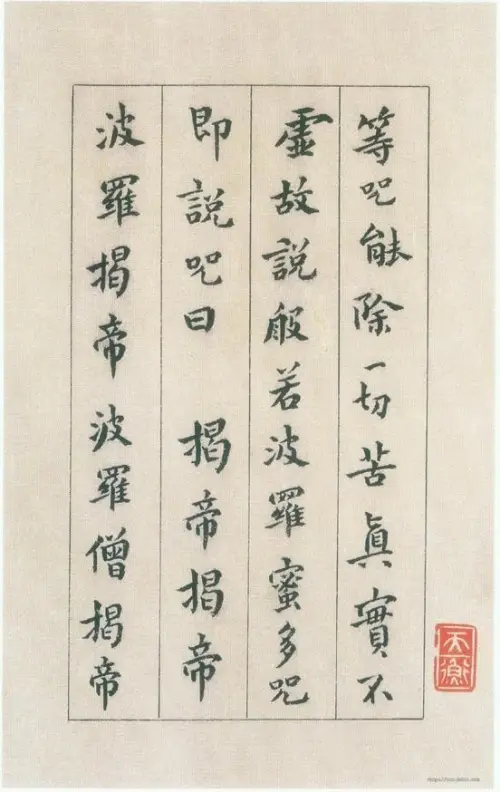 等咒能除一切苦真實不
虛故說般若波羅蜜多咒
即說咒曰　揭帝揭帝
波羅揭帝　波羅僧揭帝
天衡